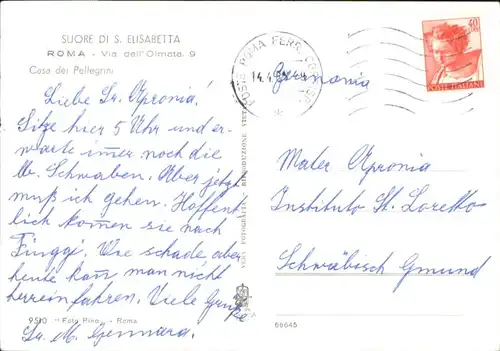 SUORE DI S. ELISABETTA
ROMA - Via dell'Olmata, 9
Casa dei Pellegrini
Liebe Sr. Apronia!
Sitze hier 5 Uhr und er-
warte immer noch die
lb. Schwaben. Aber jetzt
muß ich gehen. Hoffent-
lich kommen sie nach
Fiuggi. Wie schade, aber
heute kann man nicht
hereinfahren. Viele Grüße
Sr. M. Gennara.
9510 "Foto Rino" - Roma
VERA FOTOGRAFIA - RIPRODUZIONE VIETATA
POSTE ROMA FERR.
14.4
Germania
40
POSTE ITALIANE
Mater Apronia
Instituto St. Loretto
Schwäbisch Gmünd
66645